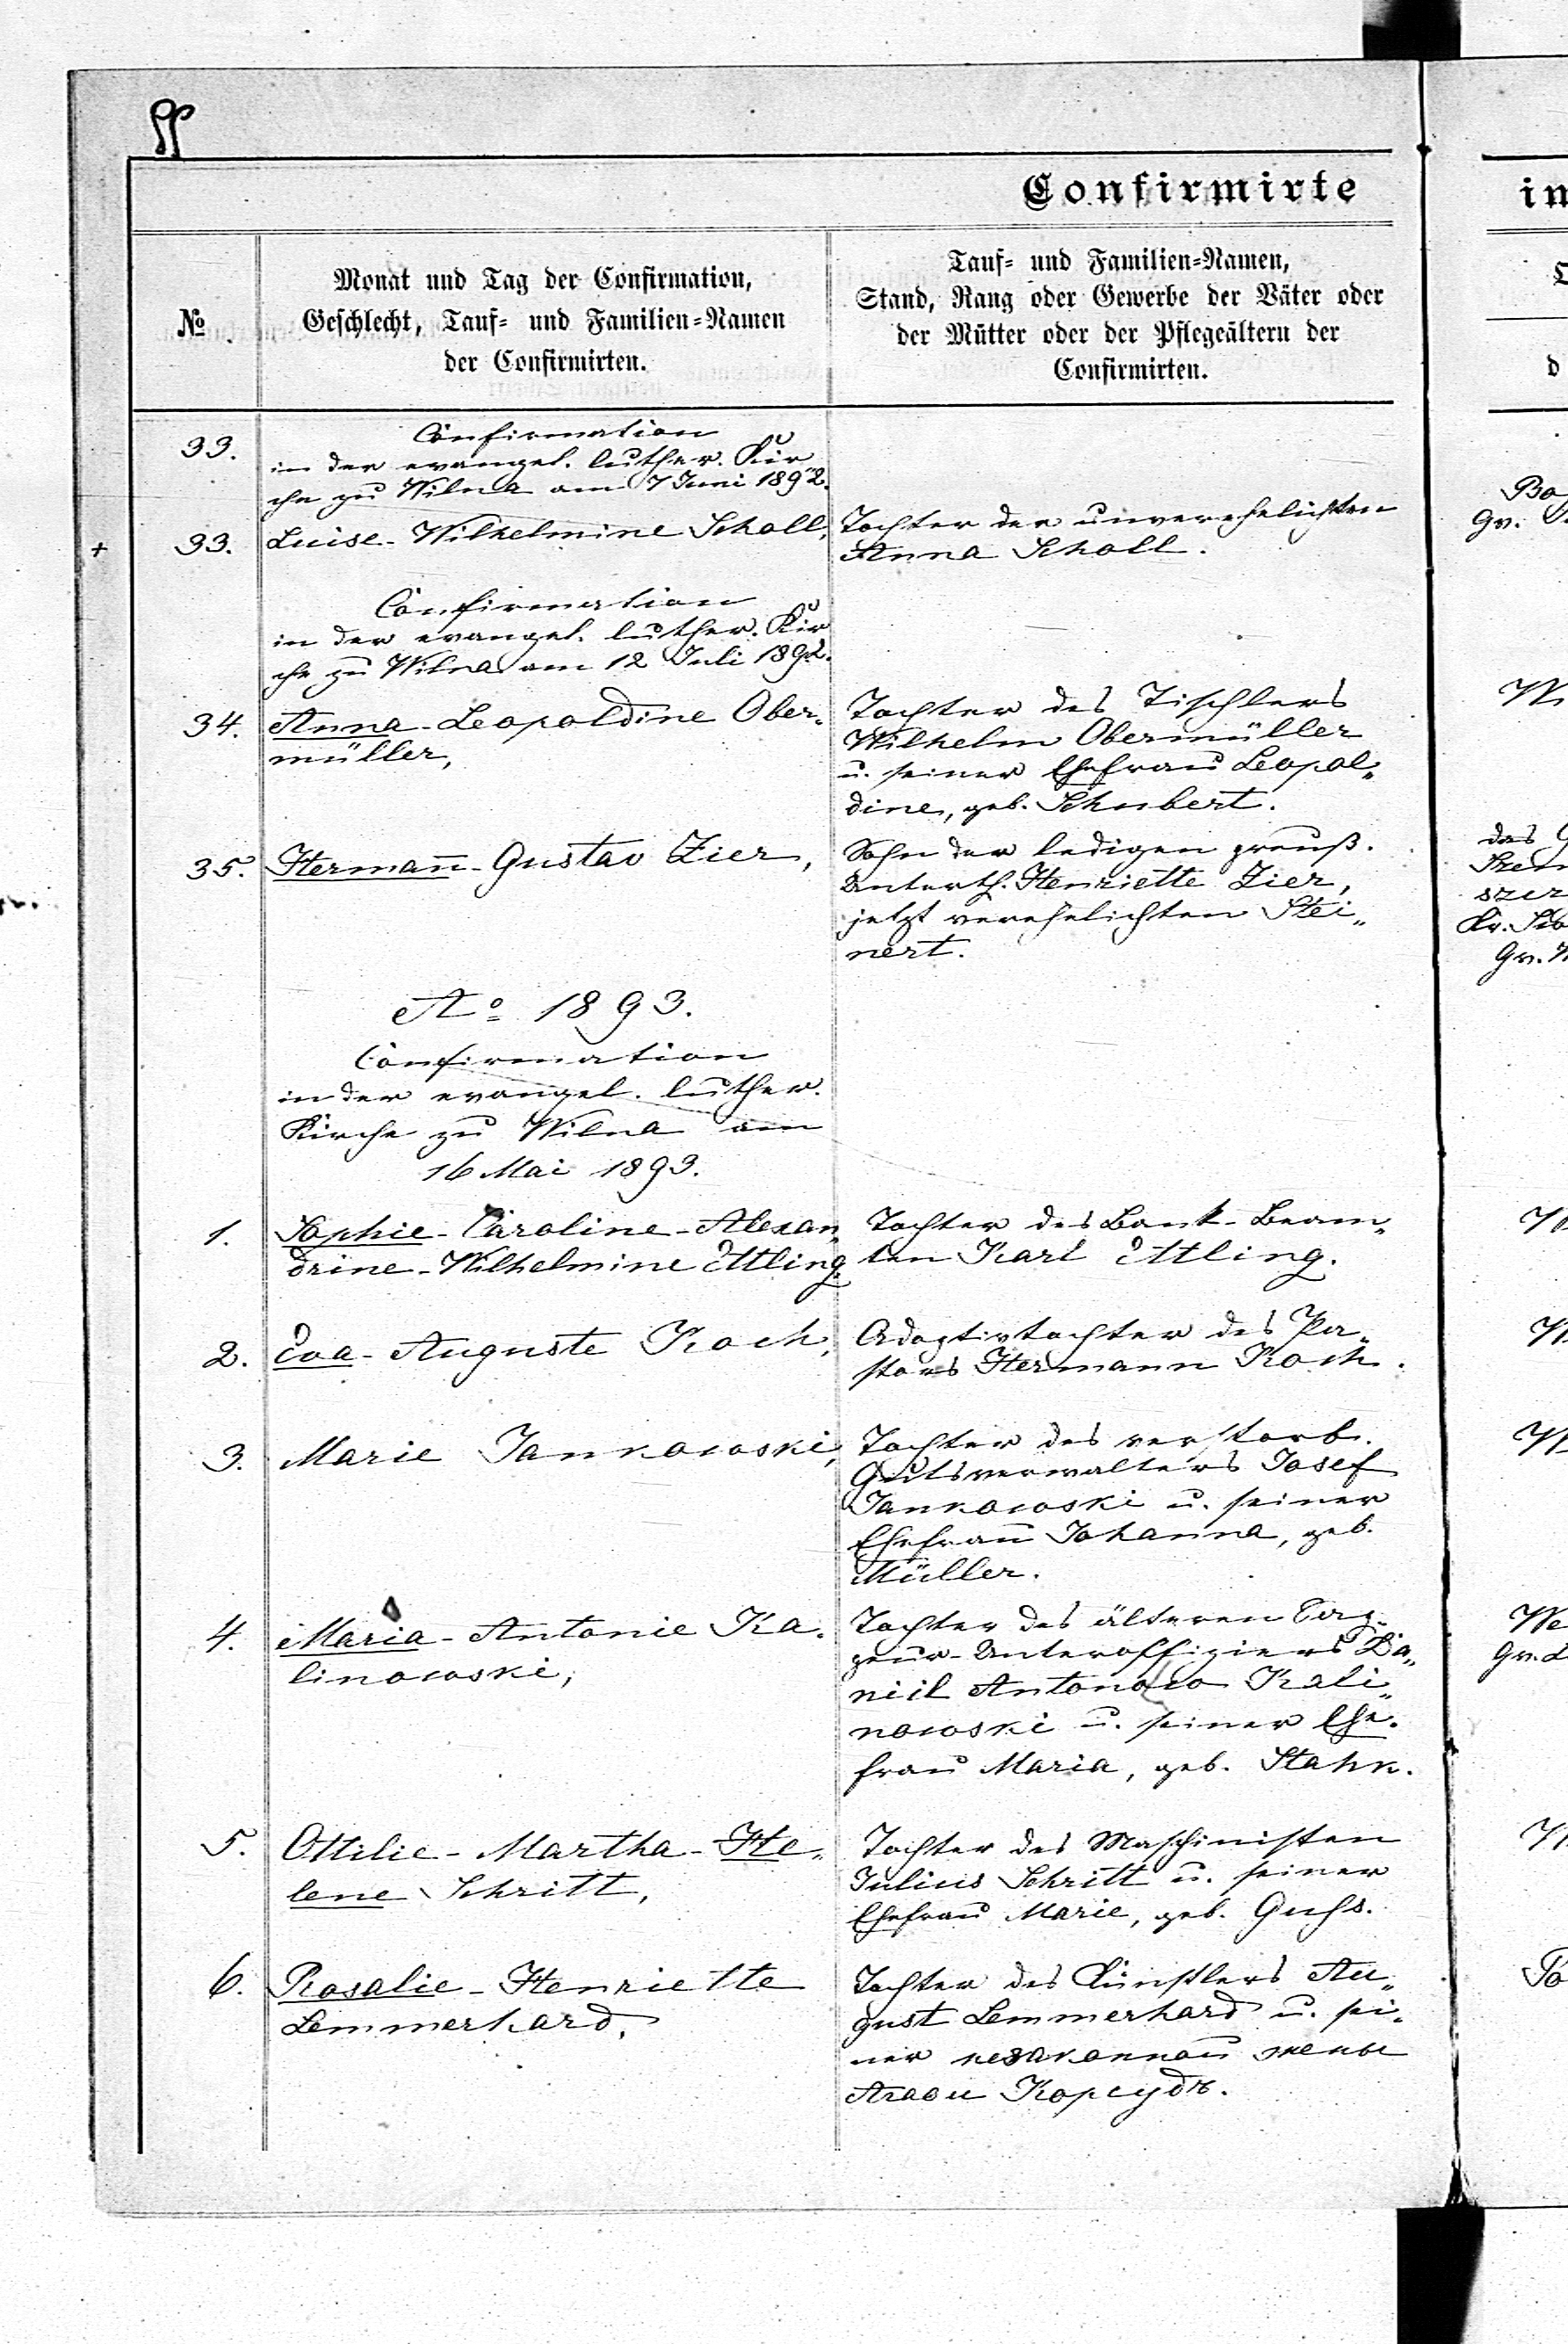 Confirmirte
in
№
Monat und Tag der Confirmation,
Geschlecht, Tauf- und Familien-Namen
der Confirmirten.
Tauf- und Familien-Namen,
Stand, Rang oder Gewerbe der Väter oder
der Mütter oder der Pflegeältern der
Confirmirten.
33.
Confirmation
in der evangel. luther. Kir
che zu Wilna am 7 Juni 1892.
33. Luise-Wilhelmine Scholl,
Tochter der unverehelichten
Anna Scholl.
Confirmation
in der evangel. luther. Kir
che zu Wilna am 12 Juli 1892.
34. Anna-Leopoldine Ober-
müller,
Tochter des Tischlers
Wilhelm Obermüller
u. seiner Ehefrau Leopol-
dine, geb. Schubert.
35. Hermann-Gustav Zier,
Sohn der ledigen preuß.
Unterth. Henriette Zier,
jetzt verehelichten Stei-
nert.
Ao 1893.
Confirmation
in der evangel. luther.
Kirche zu Wilna am
16 Mai 1893.
1. Sophie-Caroline-Alexan-
drine-Wilhelmine Ettling,
Tochter des Bank-Beam-
ten Karl Ettling.
2. Eva-Auguste Koch,
Adoptivtochter des Pa-
stors Hermann Koch.
3. Marie Jankowski,
Tochter des verstorb.
Gutsverwalters Josef
Jankowski u. seiner
Ehefrau Johanna, geb.
Müller.
4. Maria-Antonie Ka-
linowski,
Tochter des älteren
Unteroffiziers Da-
niil Antonow Kali-
nowski u. seiner Ehe-
frau Maria, geb. Stahn.
5. Ottilie-Martha-He-
lene Schritt,
Tochter des Maschinisten
Julius Schritt u. seiner
Ehefrau Marie, geb. Guhs.
6. Rosalie-Henriette
Lemmerhard,
Tochter des Künstlers Au-
gust Lemmerhard u. sei-
ner незаконной жены
Агаѳи Корсудъ.